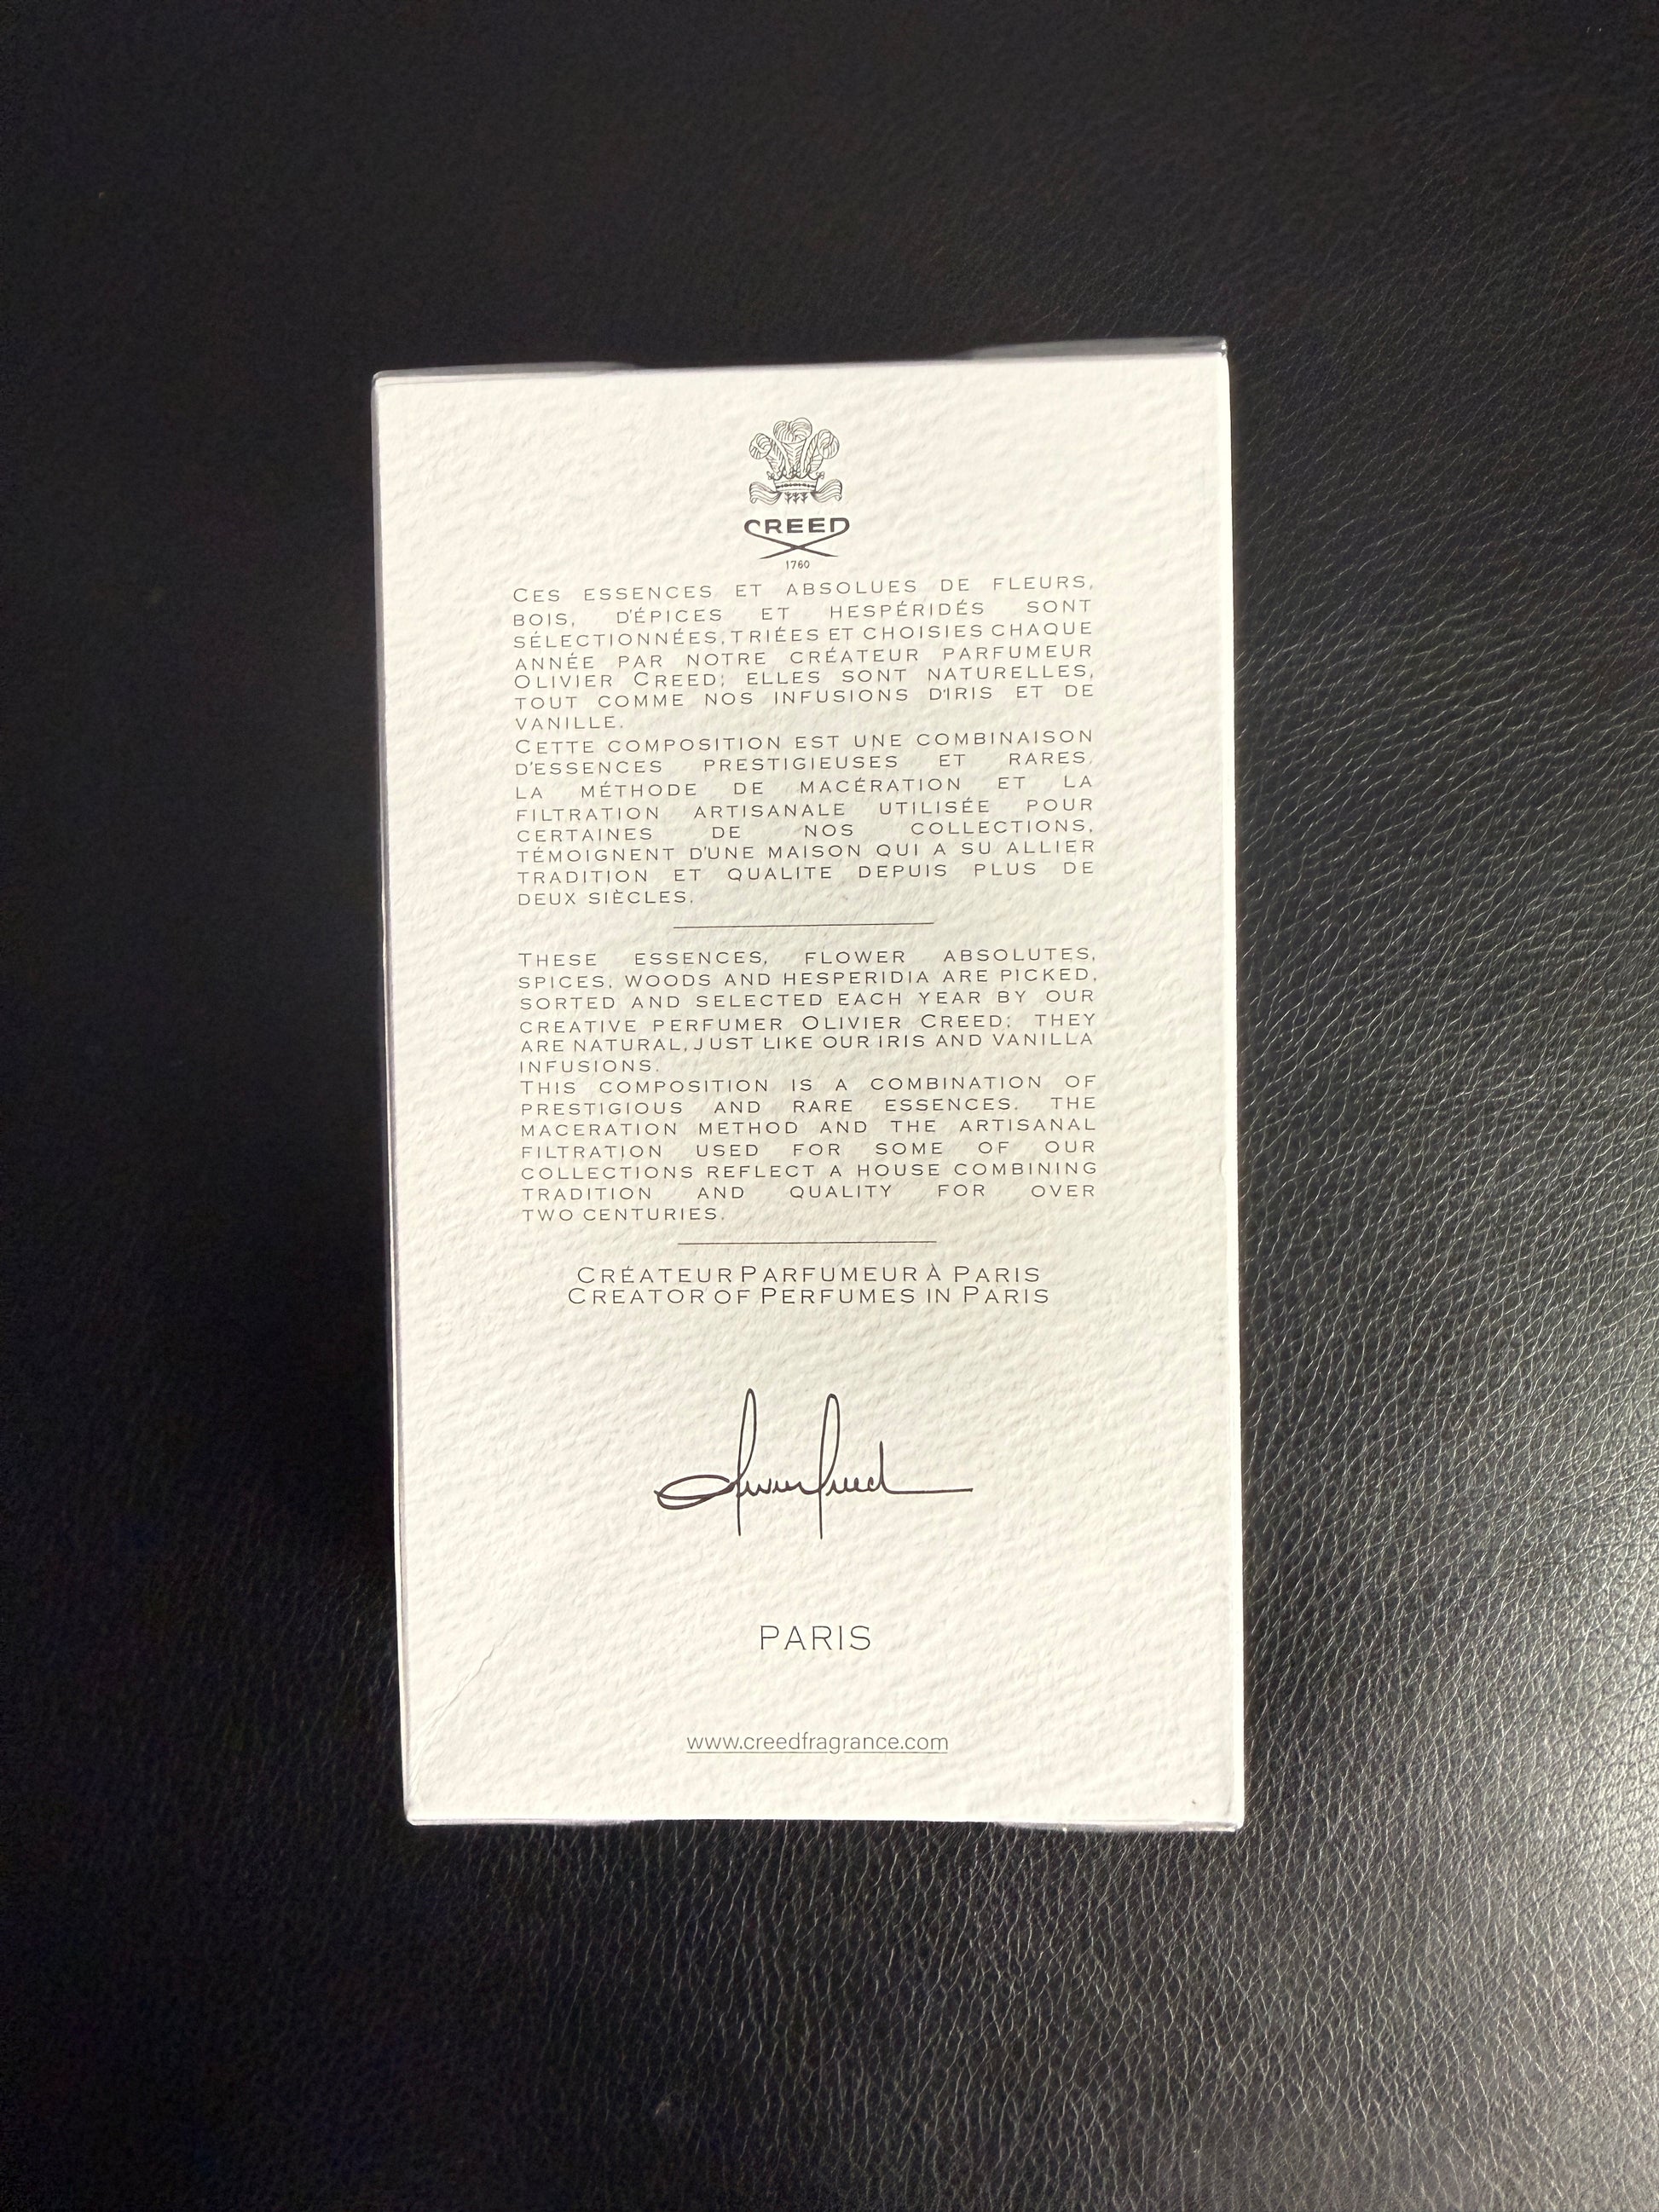 CREED
1760
CES ESSENCES ET ABSOLUES DE FLEURS,
BOIS, D'ÉPICES ET HESPÉRIDÉS SONT
SÉLECTIONNÉES, TRIÉES ET CHOISIES CHAQUE
ANNÉE PAR NOTRE CRÉATEUR PARFUMEUR
OLIVIER CREED; ELLES SONT NATURELLES,
TOUT COMME NOS INFUSIONS D'IRIS ET DE
VANILLE.
CETTE COMPOSITION EST UNE COMBINAISON
D'ESSENCES PRESTIGIEUSES ET RARES.
LA MÉTHODE DE MACÉRATION ET LA
FILTRATION ARTISANALE UTILISÉE POUR
CERTAINES DE NOS COLLECTIONS,
TÉMOIGNENT D'UNE MAISON QUI A SU ALLIER
TRADITION ET QUALITE DEPUIS PLUS DE
DEUX SIÈCLES.
THESE ESSENCES, FLOWER ABSOLUTES,
SPICES, WOODS AND HESPERIDIA ARE PICKED,
SORTED AND SELECTED EACH YEAR BY OUR
CREATIVE PERFUMER OLIVIER CREED; THEY
ARE NATURAL, JUST LIKE OUR IRIS AND VANILLA
INFUSIONS.
THIS COMPOSITION IS A COMBINATION OF
PRESTIGIOUS AND RARE ESSENCES. THE
MACERATION METHOD AND THE ARTISANAL
FILTRATION USED FOR SOME OF OUR
COLLECTIONS REFLECT A HOUSE COMBINING
TRADITION AND QUALITY FOR OVER
TWO CENTURIES.
CRÉATEUR PARFUMEUR À PARIS
CREATOR OF PERFUMES IN PARIS
Olivier Creed
PARIS
www.creedfragrance.com